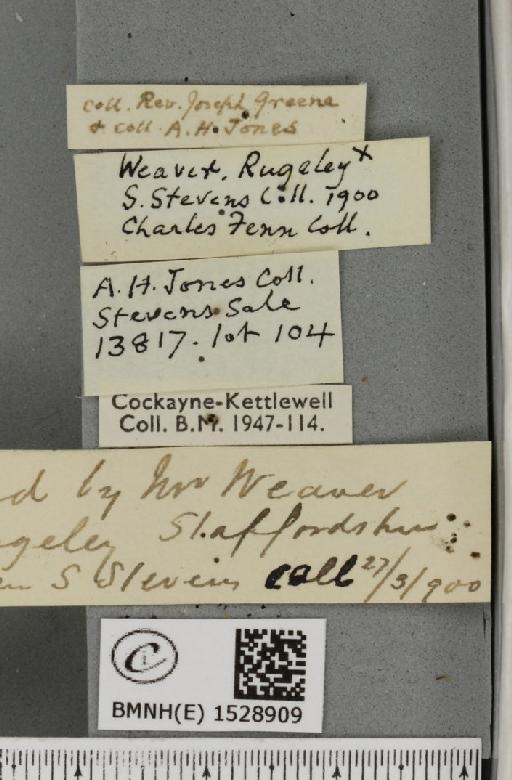 coll. Rev. Joseph Greene
& coll. A. H. Jones
Weaver. Rugeley x
S. Stevens Coll. 1900
Charles Fenn Coll.
A. H. Jones Coll.
Stevens Sale
13817. lot 104
Cockayne-Kettlewell
Coll. B.M. 1947-114.
d by Mr Weaver
geley Staffordshire
S Stevens coll 27/3/900
BMNH(E) 1528909